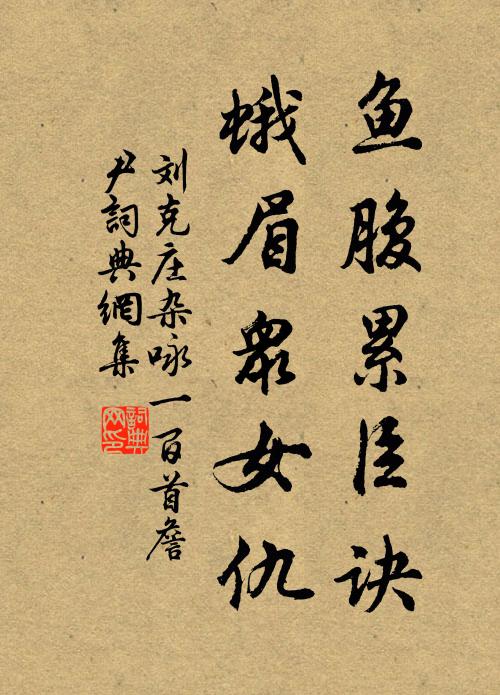 鱼腹累臣诀
蛾眉众女仇
刘克庄杂咏一百首詹
尹词典网集
詞典
网印